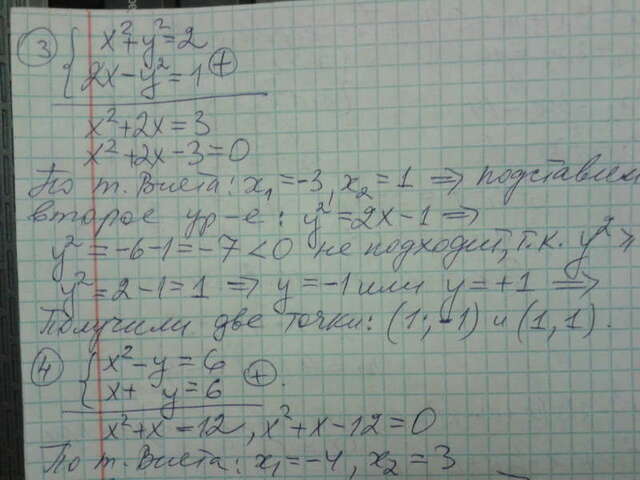 ③ { x²+y²=2
2x-y²=1 ⊕
x²+2x=3
x²+2x-3=0
По т. Виета: x₁=-3, x₂=1 ⇒ подставляем
второе ур-е: y²=2x-1 ⇒
y²=-6-1=-7<0 не подходит, т.к. y²≥
y²=2-1=1 ⇒ y=-1 или y=+1 ⇒
Получили две точки: (1;-1) и (1,1).
④ { x²-y=6
x+ y=6 ⊕.
x²+x=12, x²+x-12=0
По т. Виета: x₁=-4, x₂=3